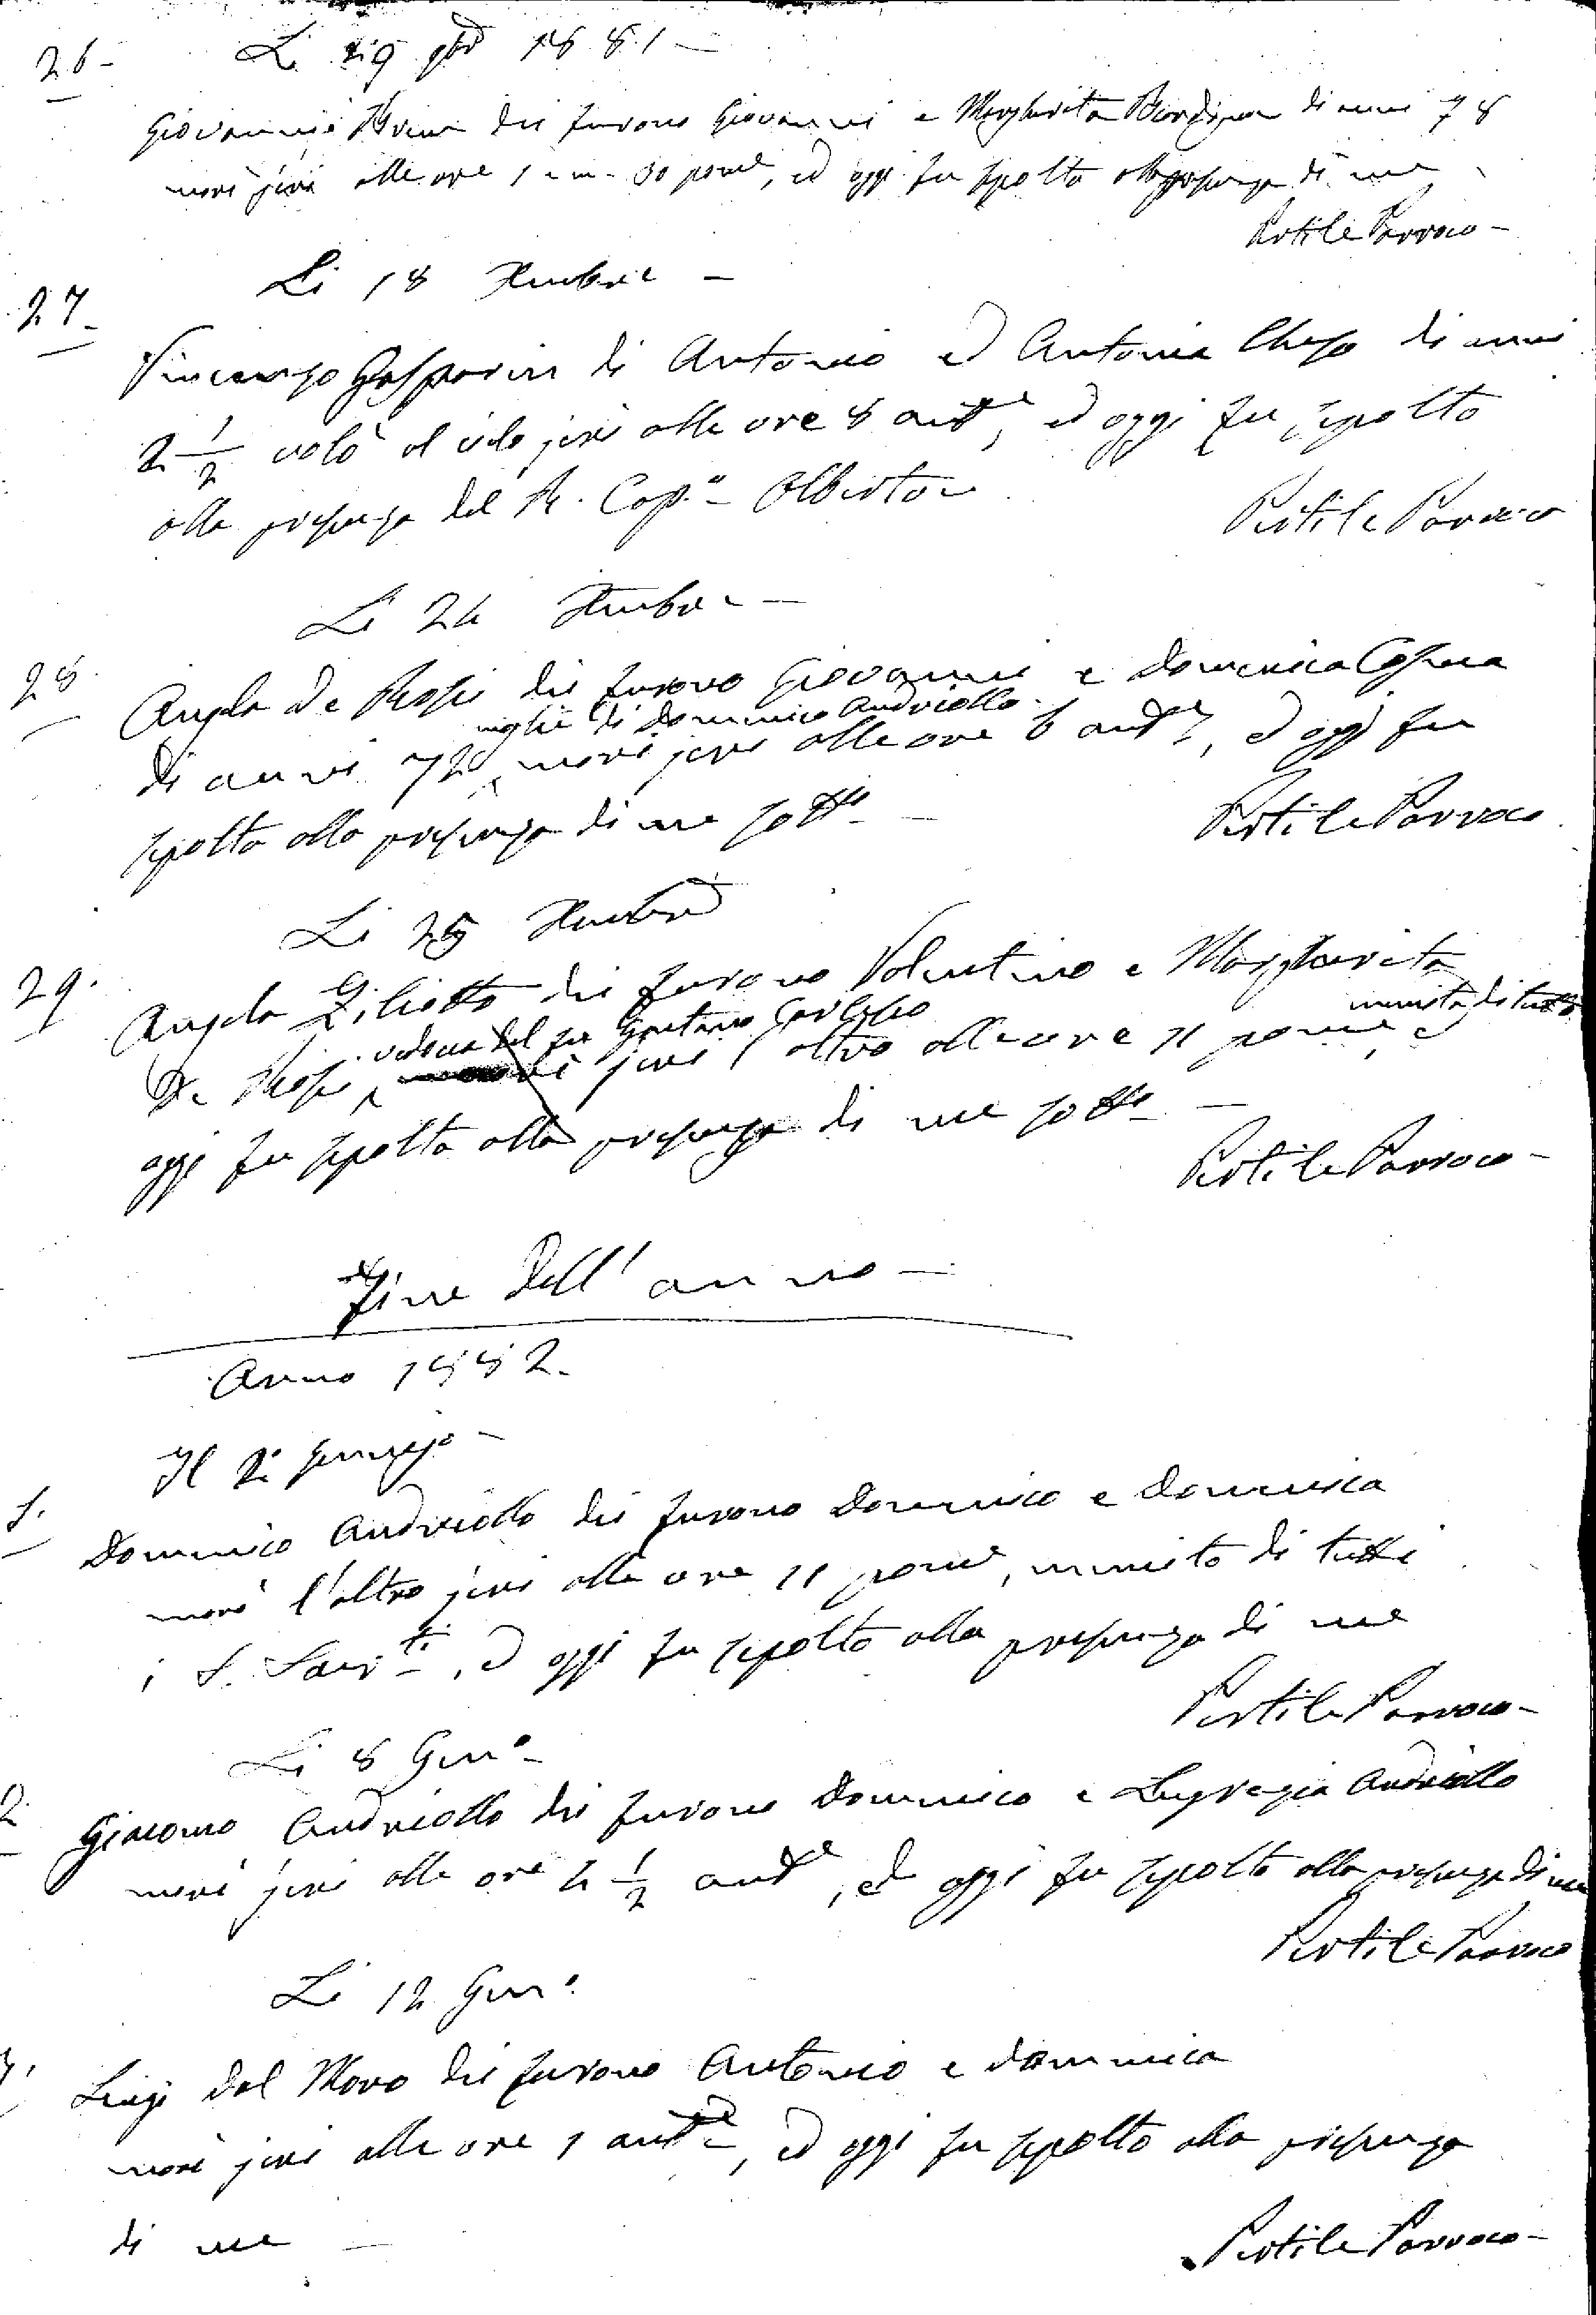 26-
Li 29 9bre 1881 -
Giovanni dei furono Giovanni e Margherita di anni 78
morì jeri alle ore 1 e m. 30 pome, ed oggi fu sepolto alla presenza di me
Pertile Parroco -
Li 18 Xmbre -
27-
Vincenzo Gasparin di Antonio ed Antonia di anni
2 1/2 volò al cielo jeri alle ore 8 ante, ed oggi fu sepolto
alla presenza del R. Capo Alberton
Pertile Parroco
Li 24 Xmbre -
28.
Angela De Rossi dei furono Giovanni e Domenica
moglie di Domenico Andriollo
di anni 72, morì jeri alle ore 6 ante, ed oggi fu
sepolta alla presenza di me sotto -
Pertile Parroco
Li 25 Xmbre
29.
Angela Ziliotto dei furono Valentino e Margherita
vedova del fu Gaetano munita di tutto
De Rossi, morì jeri l'altro alle ore 11 pome, e
oggi fu sepolta alla presenza di me sotto -
Pertile Parroco -
Fine dell'anno -
Anno 1882.
Il 2 Gennajo -
1.
Domenico Andriollo dei furono Domenico e Domenica
morì l'altro jeri alle ore 11 pome, munito di tutti
i S. Sacrti, ed oggi fu sepolto alla presenza di me
Pertile Parroco -
Li 8 Genno -
2.
Giacomo Andriollo dei furono Domenico e Lugrezia Andriollo
morì jeri alle ore 4 1/2 ante, ed oggi fu sepolto alla presenza di me
Pertile Parroco
Li 12 Genno
Luigi Dal Moro dei furono Antonio e Domenica
morì jeri alle ore 1 ante, ed oggi fu sepolto alla presenza
di me -
Pertile Parroco -